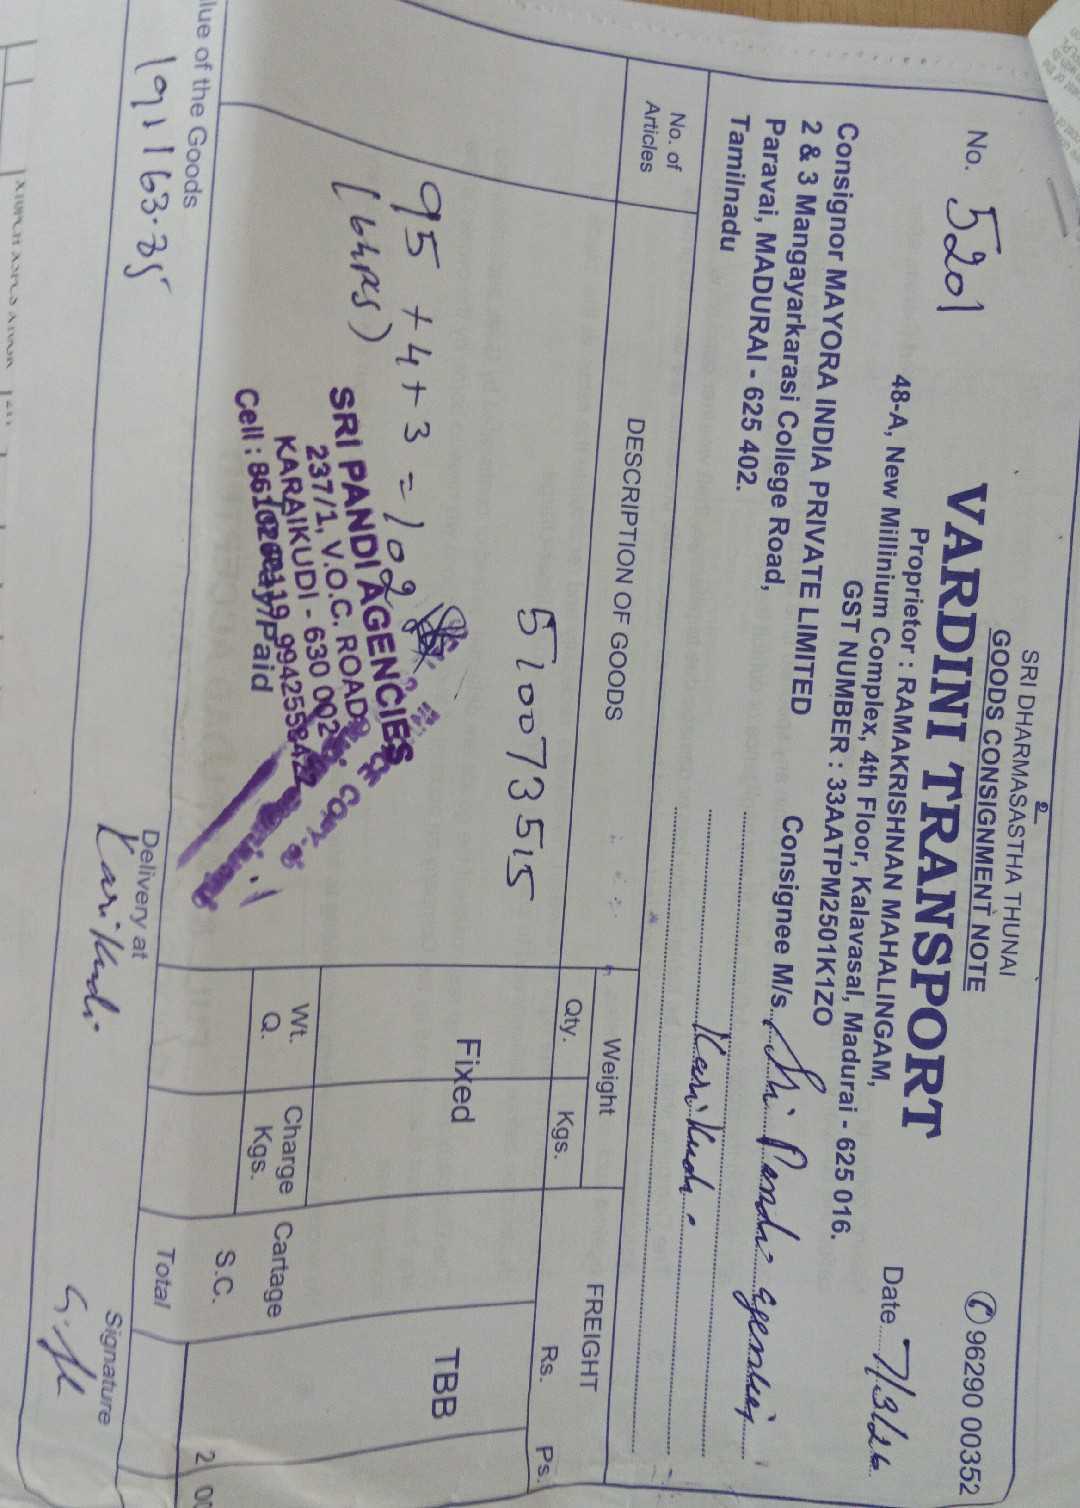 SRI DHARMASASTHA THUNAI
GOODS CONSIGNMENT NOTE
✆ 96290 00352
No. 5201
VARDINI TRANSPORT
Proprietor : RAMAKRISHNAN MAHALINGAM,
48-A, New Millinium Complex, 4th Floor, Kalavasal, Madurai - 625 016.
GST NUMBER : 33AATPM2501K1ZO
Date 7/3/26
Consignor MAYORA INDIA PRIVATE LIMITED
2 & 3 Mangayarkarasi College Road,
Paravai, MADURAI - 625 402.
Tamilnadu
Consignee M/s. Sri Pandi Agencies
Karikudi.
No. of Articles
DESCRIPTION OF GOODS
Weight
Qty.
Kgs.
FREIGHT
Rs.
Ps.
510073515
95 + 4 + 3 = 102
(6hrs)
Fixed
TBB
SRI PANDI AGENCIES
237/1, V.O.C. ROAD
KARAIKUDI - 630 002
Cell :
Paid
Wt.
Q.
Charge
Kgs.
Cartage
S.C.
2 00
Total
lue of the Goods
191163.35
Delivery at
Karikudi.
Signature